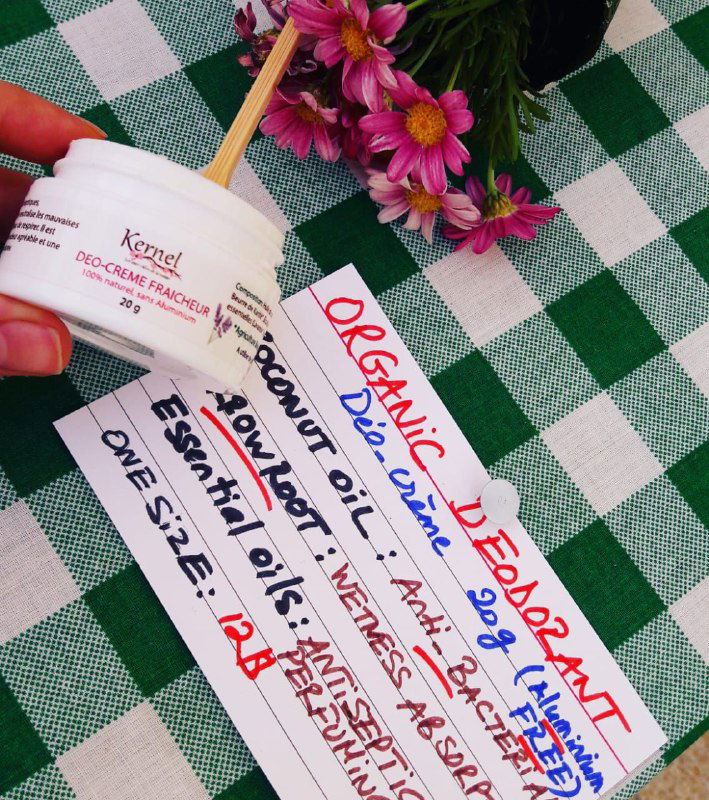 les mauvaises
de respirer. Il est
agréable et une
Kernel
DEO-CREME FRAICHEUR
100% naturel, sans Aluminium
20 g
Beurre de Karité
ORGANIC DEODORANT
Déo-crème 20g (Aluminium
FREE)
OCONUT OIL: Anti-BACTERIA
ROWROOT: WETNESS ABSORP
Essential oils: ANTISEPTIC
PERFUMING
ONE SIZE: 12